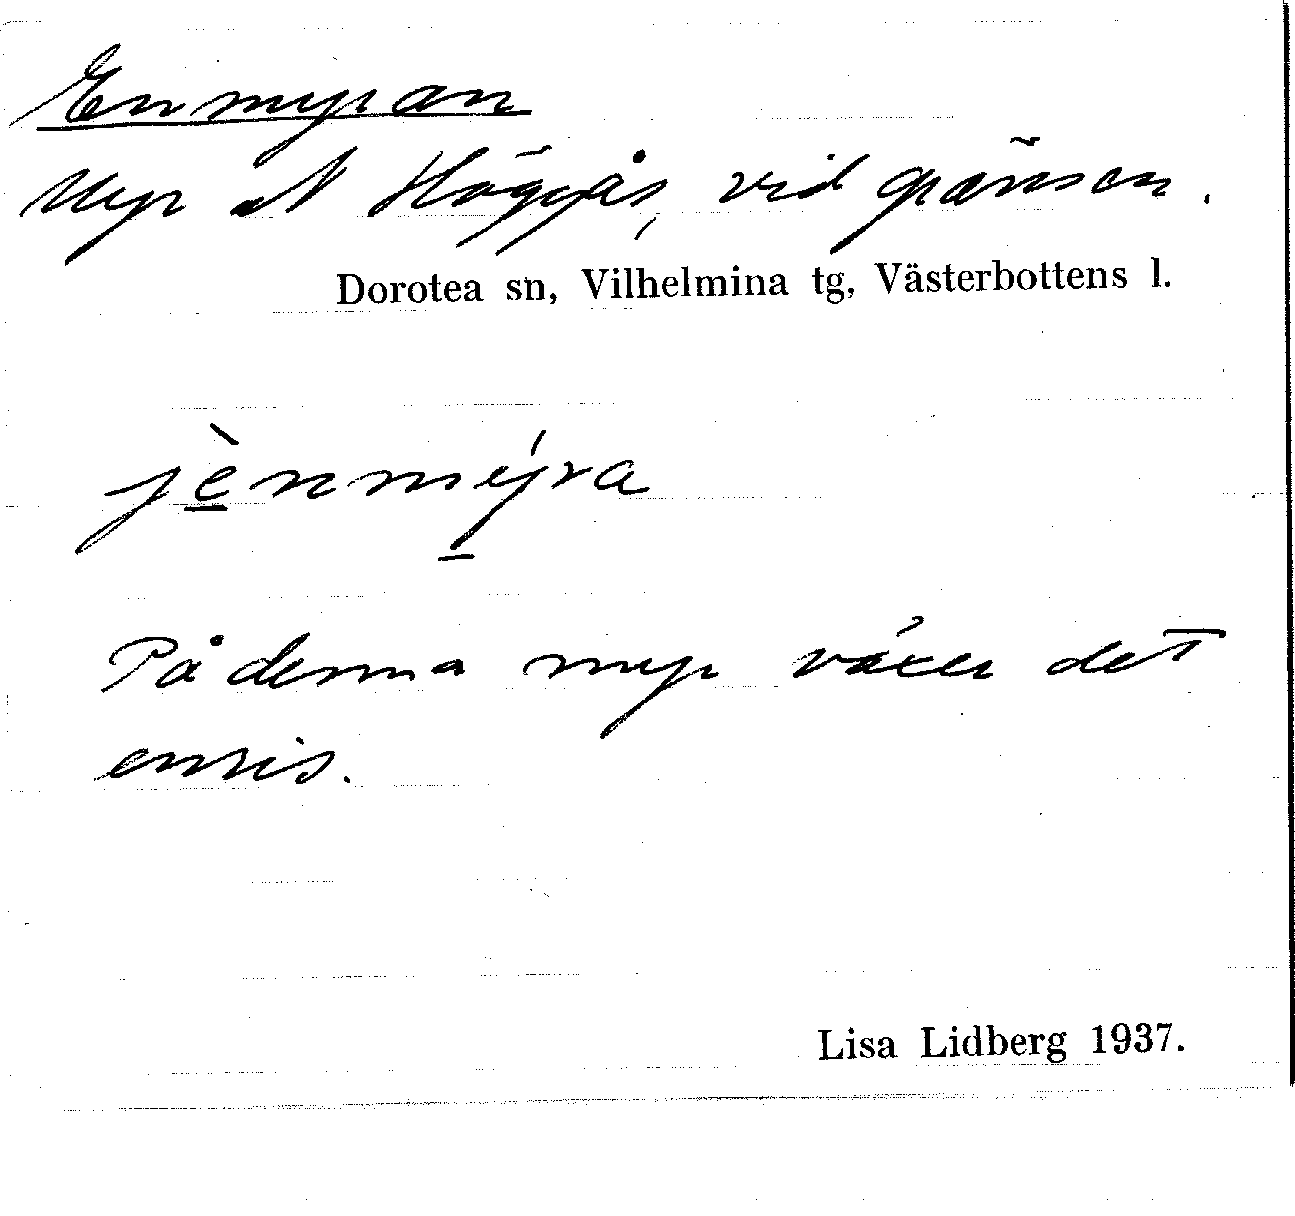 Enmyran
Myr N Högås, vid gränsen.
Dorotea sn, Vilhelmina tg, Västerbottens l.
jè̲nmý̲ra
På denna myr växer det
enris.
Lisa Lidberg 1937.